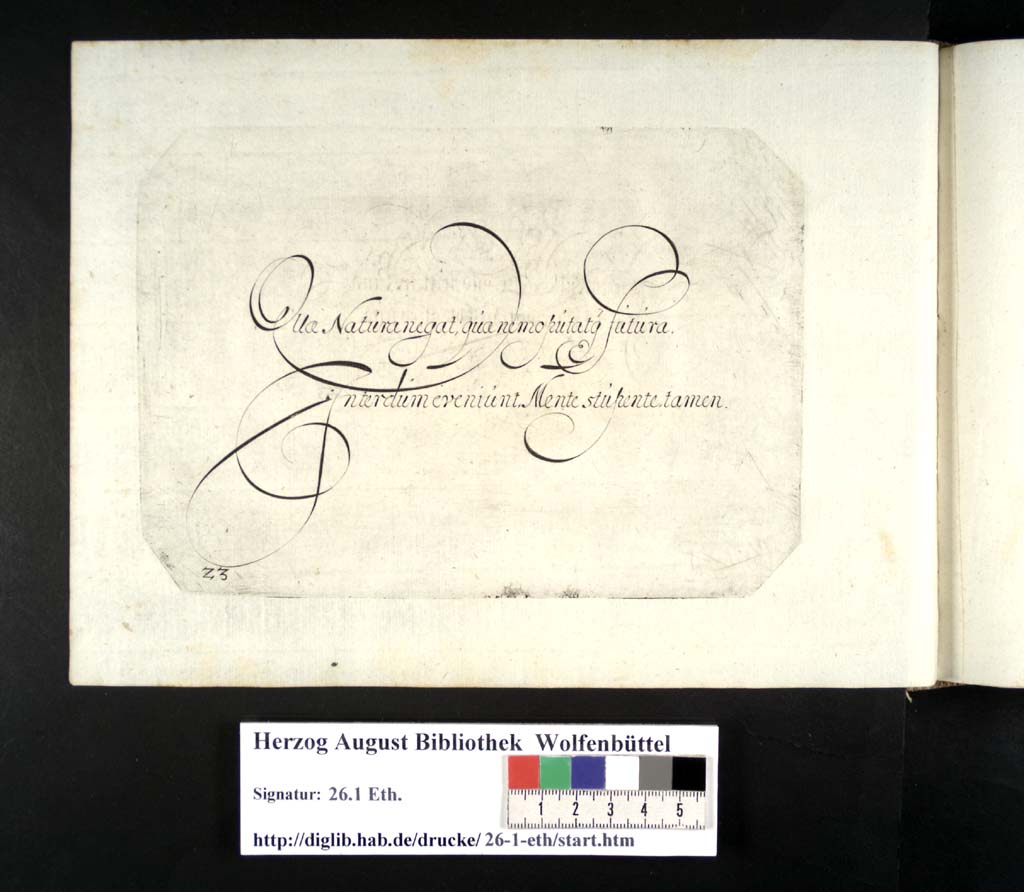 Quæ Natúra negat, qúa nemo pútatq́ fútúra.
Interdúm eveniúnt. Mente stúpente, tamen.
23
Herzog August Bibliothek Wolfenbüttel
Signatur: 26.1 Eth.
1 2 3 4 5
http://diglib.hab.de/drucke/ 26-1-eth/start.htm